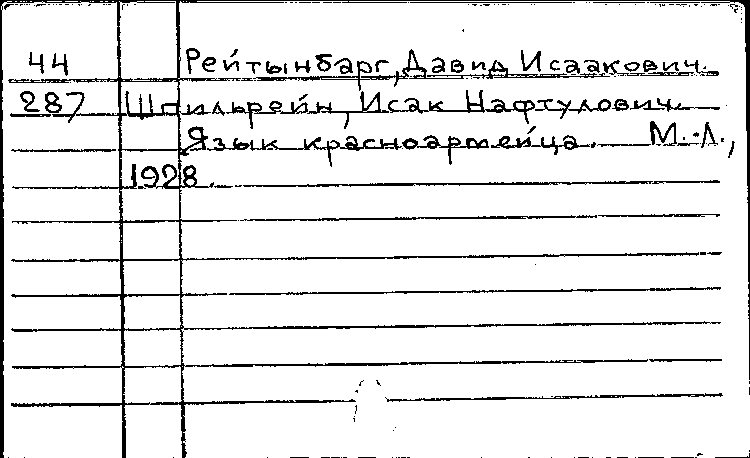 44 Рейтынбарг, Давид Исаакович.
287 Шпильрейн, Исак Нафтулович.
Язык красноармейца. М.-Л.,
1928.